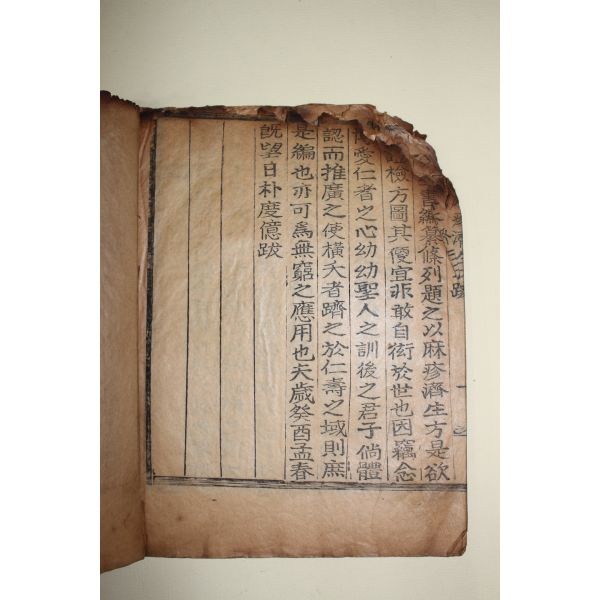 書編纂條列題之以麻疹濟生方是欲
檢方圖其便宜非敢自衒於世也因竊念
愛仁者之心幼幼聖人之訓後之君子倘體
認而推廣之使橫夭者躋之於仁壽之域則庶
是編也亦可爲無窮之應用也夫歲癸酉孟春
旣望日朴慶億跋